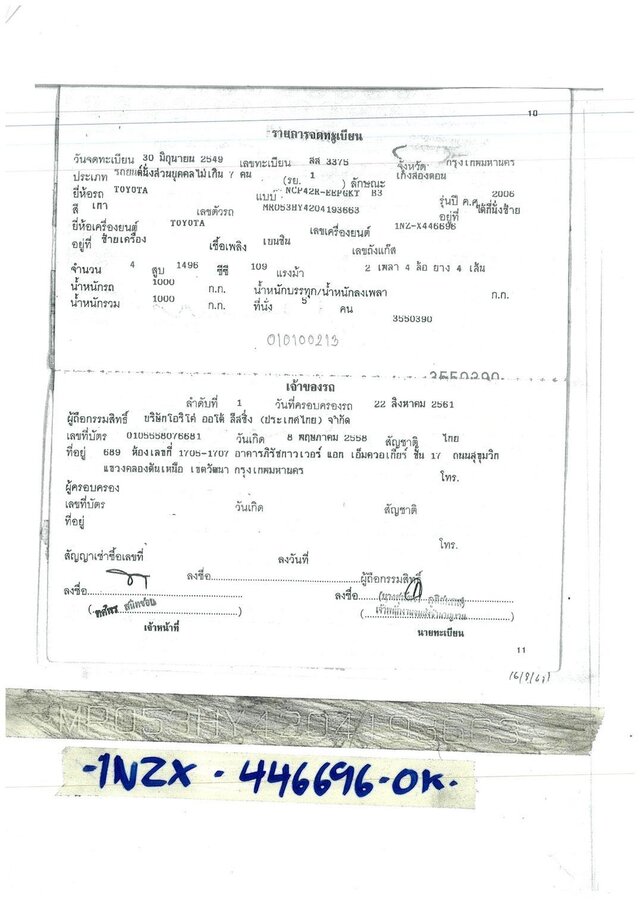 10
รายการจดทะเบียน
วันจดทะเบียน 30 มิถุนายน 2549 เลขทะเบียน สส 3375 จังหวัด กรุงเทพมหานคร
ประเภท รถยนต์นั่งส่วนบุคคลไม่เกิน 7 คน (รย. 1 ) ลักษณะ เก๋งสองตอน
ยี่ห้อรถ TOYOTA แบบ NCP42R-EEPGKT B3 รุ่นปี ค.ศ. 2006
สี เทา เลขตัวรถ MR053HY4204193663 อยู่ที่ ใต้ที่นั่งซ้าย
ยี่ห้อเครื่องยนต์ TOYOTA เลขเครื่องยนต์ 1NZ-X446696
อยู่ที่ ซ้ายเครื่อง เชื้อเพลิง เบนซิน เลขถังแก๊ส
จำนวน 4 สูบ 1496 ซีซี 109 แรงม้า 2 เพลา 4 ล้อ ยาง 4 เส้น
น้ำหนักรถ 1000 ก.ก. น้ำหนักบรรทุก/น้ำหนักลงเพลา ก.ก.
น้ำหนักรวม 1000 ก.ก. ที่นั่ง 5 คน
3550390
010100213
3550390
เจ้าของรถ
ลำดับที่ 1 วันที่ครอบครองรถ 22 สิงหาคม 2561
ผู้ถือกรรมสิทธิ์ บริษัทโอริโค่ ออโต้ ลีสซิ่ง (ประเทศไทย) จำกัด
เลขที่บัตร 0105558076681 วันเกิด 8 พฤษภาคม 2558 สัญชาติ ไทย
ที่อยู่ 689 ห้องเลขที่ 1705-1707 อาคารภิรัชทาวเวอร์ แอท เอ็มควอเทียร์ ชั้น 17 ถนนสุขุมวิท
แขวงคลองตันเหนือ เขตวัฒนา กรุงเทพมหานคร โทร.
ผู้ครอบครอง
เลขที่บัตร วันเกิด สัญชาติ
ที่อยู่
โทร.
สัญญาเช่าซื้อเลขที่ ลงวันที่
ลงชื่อ ผู้ถือกรรมสิทธิ์
ลงชื่อ ลงชื่อ
เจ้าหน้าที่ นายทะเบียน
11
-1NZX - 446696-OK.